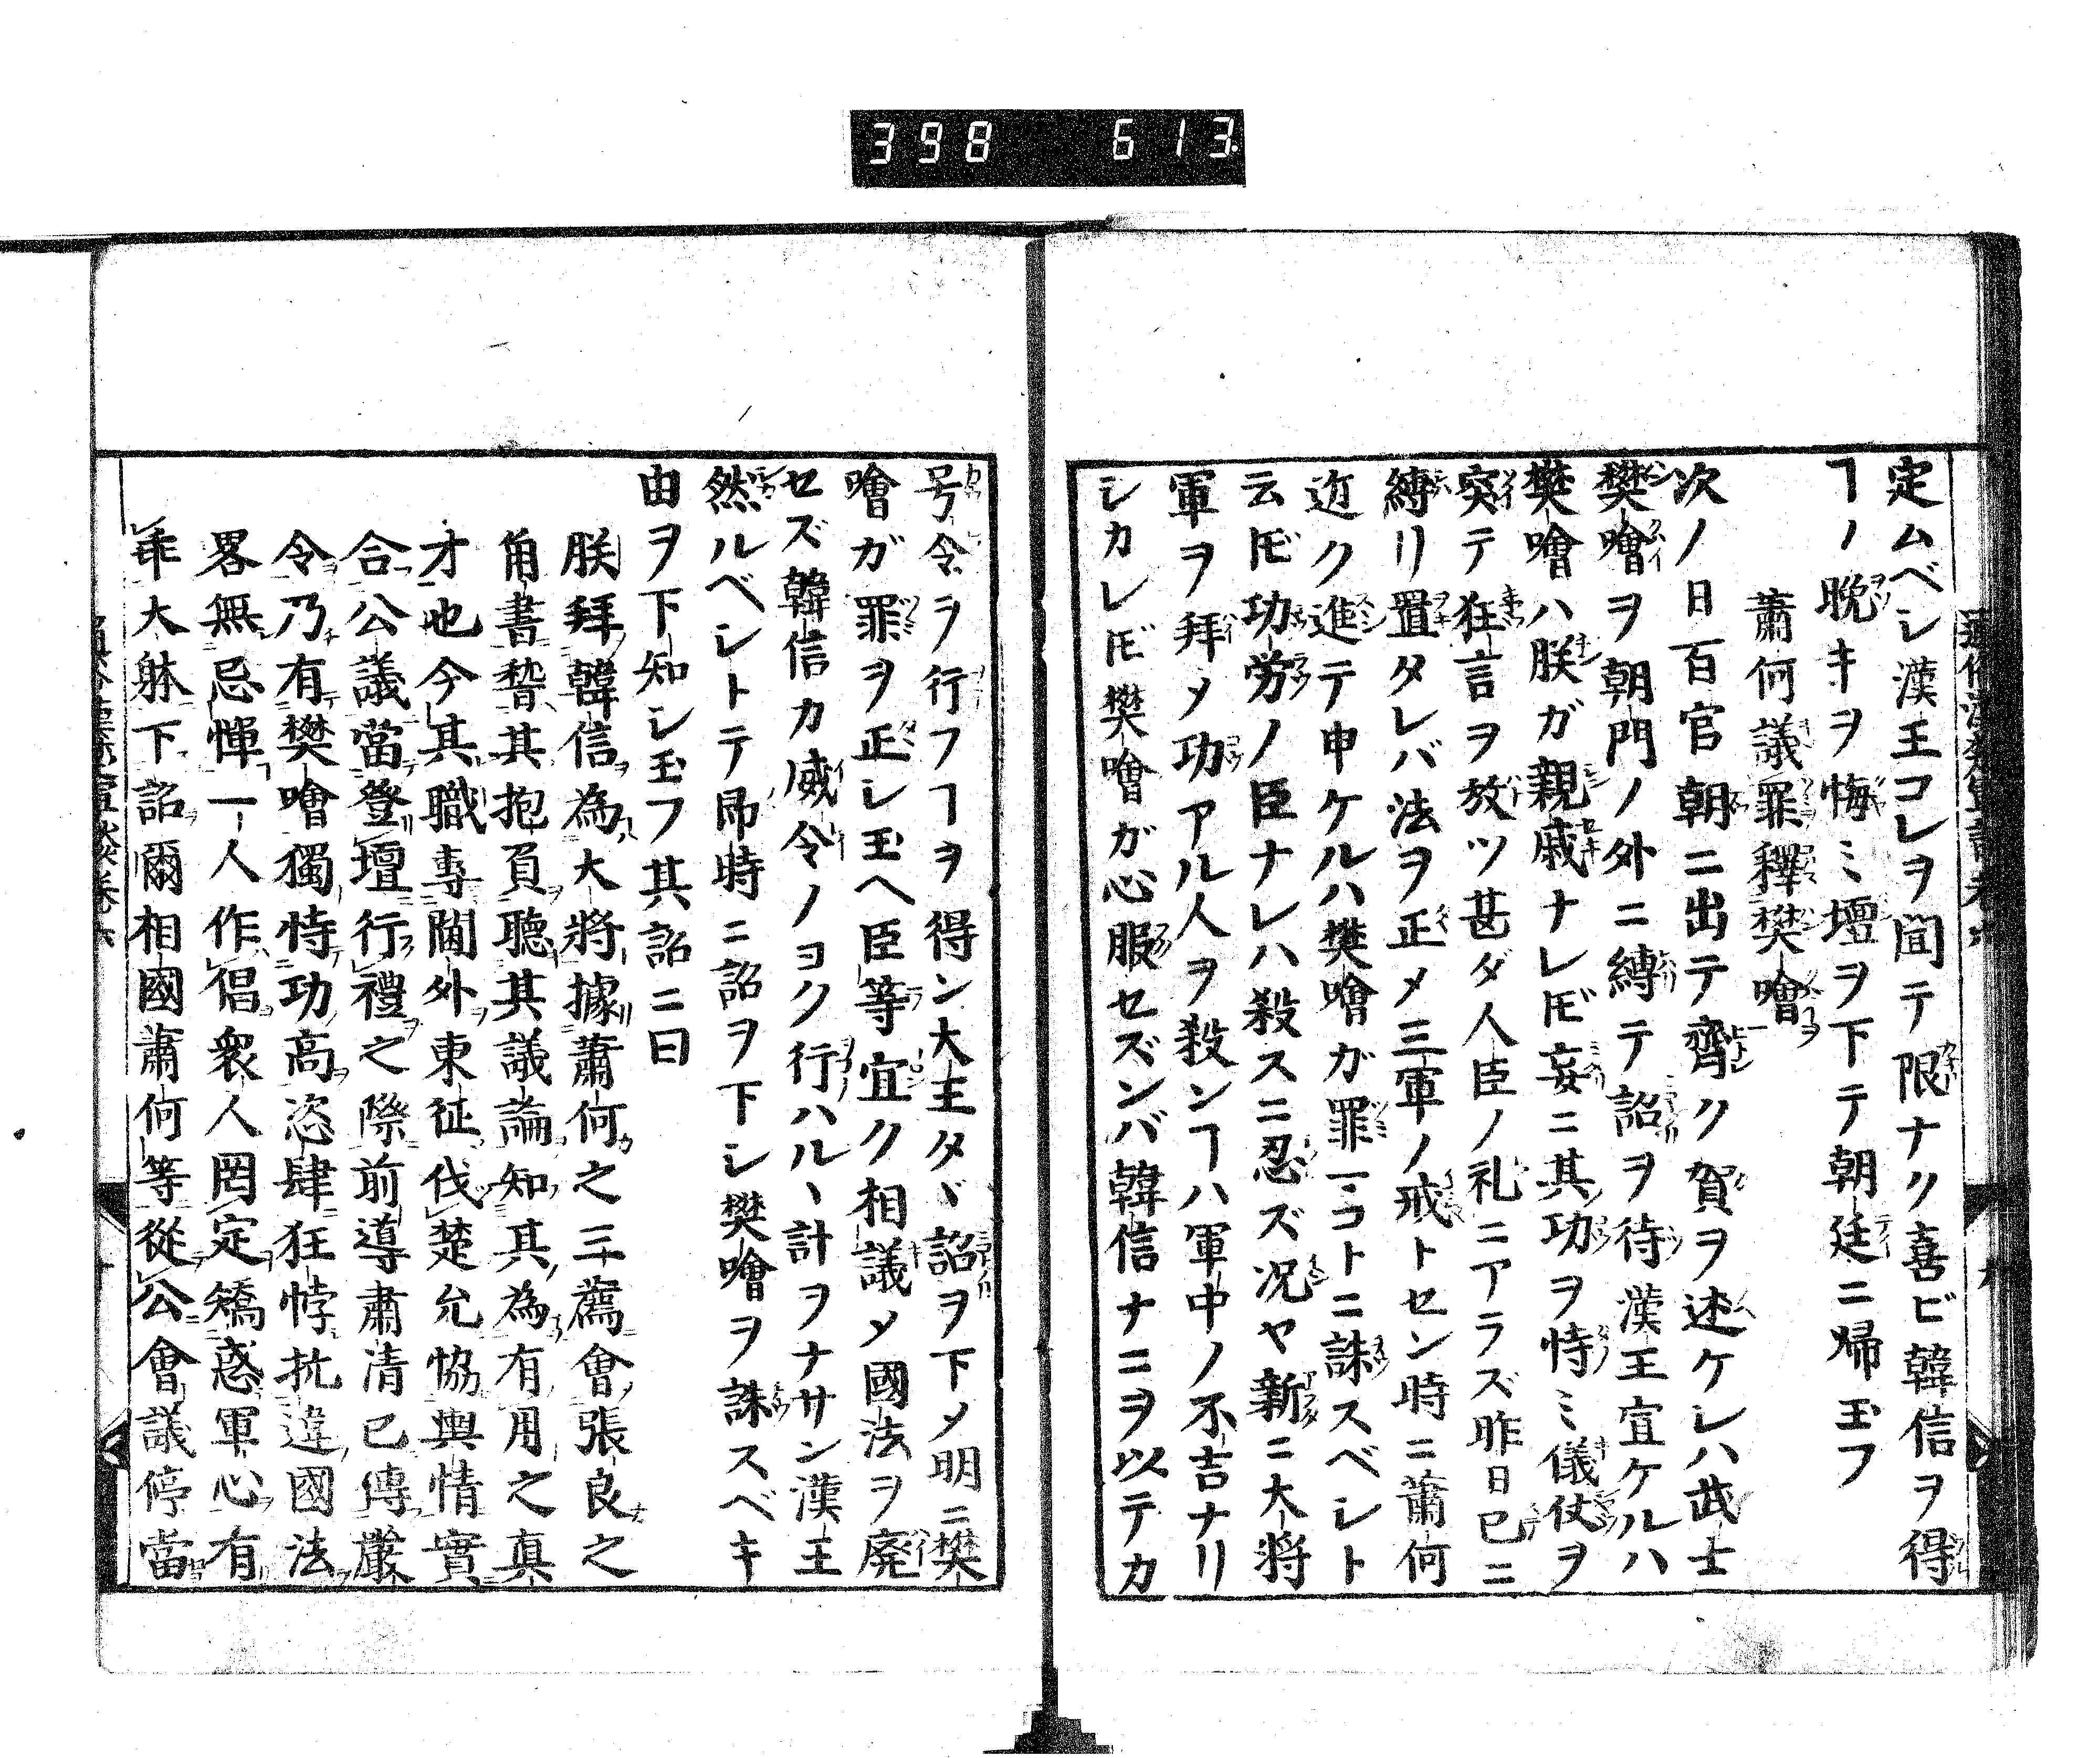 398 613
定ムベシ漢王コレヲ聞テ限ナク喜ビ韓信ヲ得
ヿノ晩キヲ悔ミ壇ヲ下テ朝廷ニ帰玉フ
蕭何議罪釋樊噲
次ノ日百官朝ニ出テ齊ク賀ヲ述ケレハ武士
樊噲ヲ朝門ノ外ニ縛テ詔ヲ待漢王宣ケルハ
樊噲ハ朕ガ親戚ナレ𪜈妄ニ其功ヲ恃ミ儀仗ヲ
突テ狂言ヲ放ツ甚ダ人臣ノ礼ニアラズ昨日已ニ
縛リ置タレバ法ヲ正メ三軍ノ戒トセン時ニ蕭何
近ク進テ申ケルハ樊噲ガ罪一コトニ誅スベシト
云𪜈功労ノ臣ナレハ殺スニ忍ズ况ヤ新ニ大将
軍ヲ拜メ功アル人ヲ殺ンヿハ軍中ノ不吉ナリ
シカレ𪜈樊噲ガ心服セズンバ韓信ナニヲ以テカ
号令ヲ行フヿヲ得ン大王タヾ詔ヲ下メ明ニ樊
噲ガ罪ヲ正シ玉ヘ臣等宜ク相議メ國法ヲ廃
セズ韓信カ威令ノヨク行ハルヽ計ヲナサン漢王
然ルベシトテ即時ニ詔ヲ下シ樊噲ヲ誅スベキ
由ヲ下知シ玉フ其詔ニ曰
朕拜韓信為大將據蕭何之三薦會張良之
角書暬其抱負聽其議論知其為有用之真
才也今其職專閫外東征伐楚允協輿情實
合公議當登壇行禮之際前導肅清已傳嚴
令乃有樊噲獨恃功高恣肆狂悖抗違國法
畧無忌憚一人作倡衆人罔定矯惑軍心有
乖大躰下詔爾相國蕭何等從公會議停當